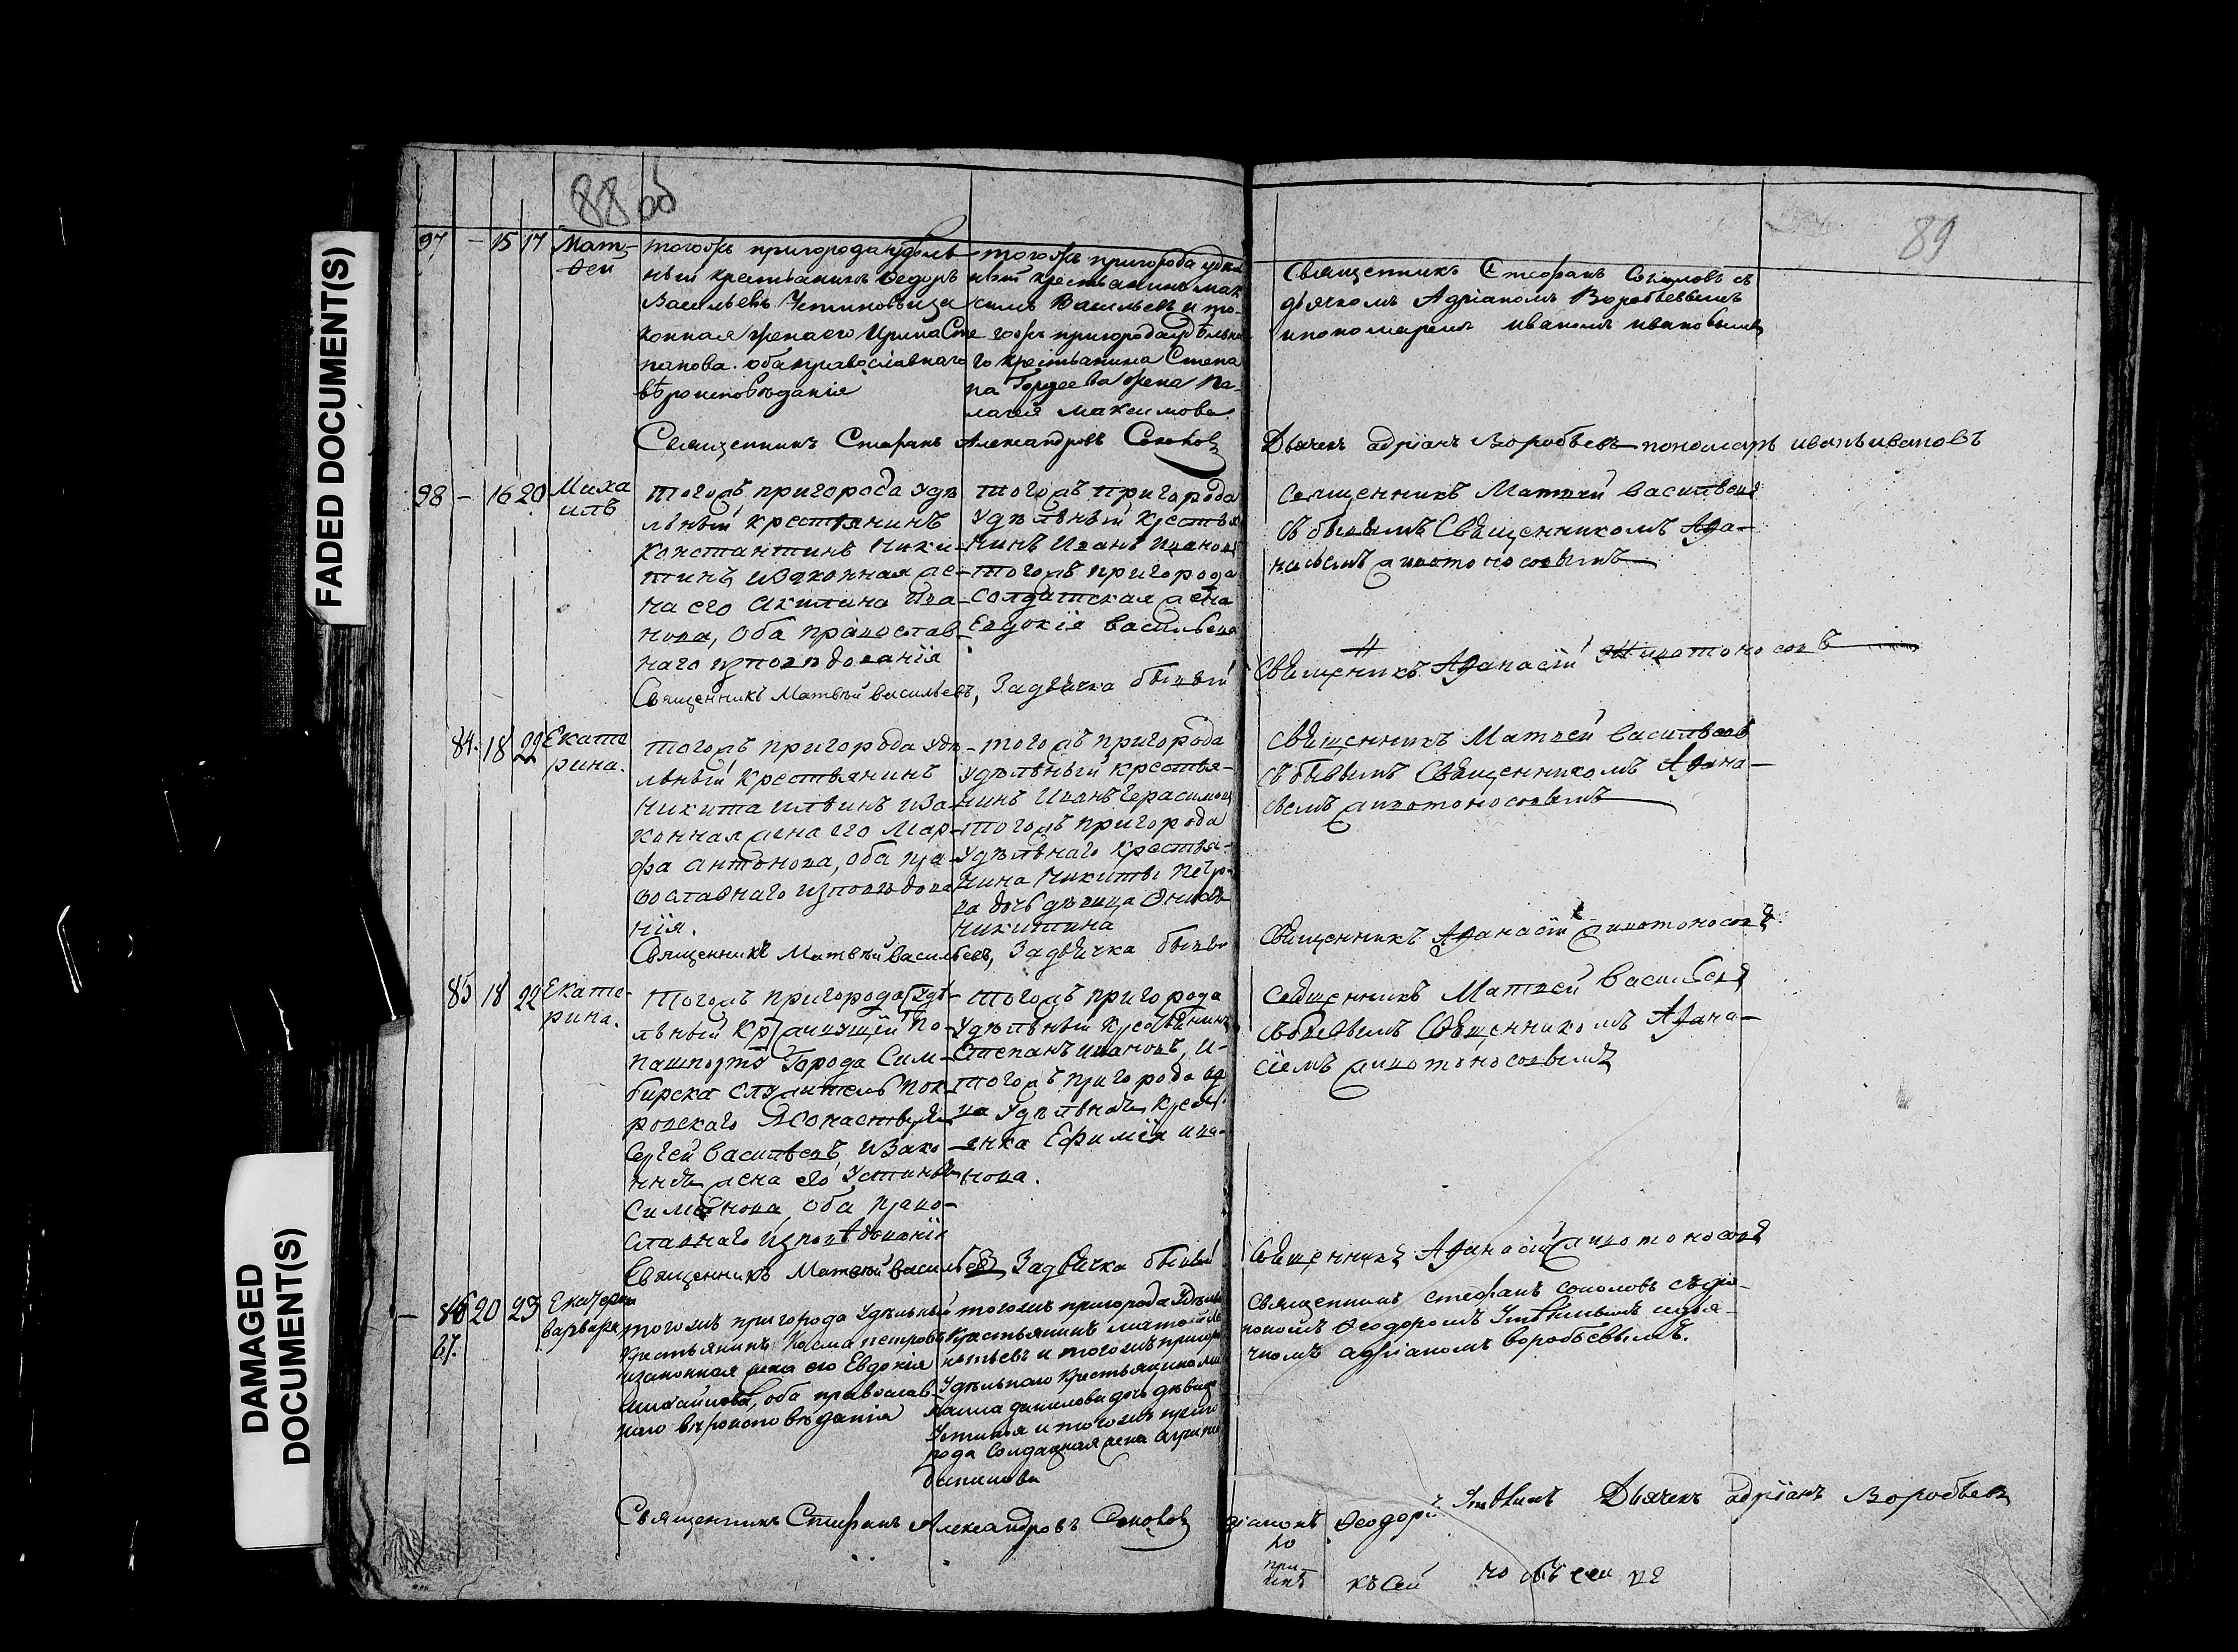 FADED DOCUMENT(S)
DAMAGED
DOCUMENT(S)
88 об
89
97 - 15 17 Мат-
ѳей
тогожъ пригорода удѣль
ный крестьянинъ Ѳедоръ
Васильевъ
конная жена его Ирина Сте
панова. оба православнаго
вѣроисповѣданія
тогожъ пригорода
крестьянинъ Мак
симъ Васильевъ и то-
гожъ пригорода удѣльна
го крестьянина Степа
на Гордеева жена Па-
лагея Максимова
Священникъ Стефанъ Соколовъ съ
дьячкомъ Адріаномъ Воробьевымъ
и пономаремъ Иваномъ Ивановымъ
Священникъ Стефанъ Александровъ Соколовъ
Дьячекъ Адріанъ Воробьевъ пономарь Иванъ Ивановъ
98 - 16 20 Миха
илъ
тогожъ пригорода удѣ
льный крестьянинъ
Константинъ Ники-
тинъ и законная же-
на его Акилина Ива-
нова, оба православ-
наго исповѣдованія
тогожъ пригорода
удѣльный крестья
нинъ Иванъ Ивановъ
тогожъ пригорода
солдатская жена
Евдокія Васильева
Священникъ Матвей Васильевъ
съ бывшимъ Священникомъ Афа-
насьемъ Животоносовымъ
Священникъ Матвѣй Васильевъ, За дьячка бывшій
Священникъ Афанасій Животоносовъ
84. 18 22 Екате
рина.
тогожъ пригорода удѣ-
льный крестьянинъ
Никита Ильинъ и за-
конная жена его Мар-
фа Антонова, оба пра-
вославнаго исповѣдова
нія.
тогожъ пригорода
удѣльный крестья-
нинъ Иванъ Герасимовъ
тогожъ пригорода
удѣльнаго крестья-
нина Никиты Петро
ва дочь девица
Никитина
Священникъ Матвей Васильевъ
съ бывшимъ Священникомъ Афана-
сьемъ Животоносовымъ
Священникъ Матвѣй Васильевъ, За дьячка бывшій
Священникъ Афанасій Животоносовъ
85 18 22 Екате-
рина.
тогожъ пригорода удѣ-
льный кр живущій по
пашпорту Города Сим-
бирска служитель Пок-
ровскаго Монастыря
Сергей Васильевъ и зако-
нная жена его Устинья
Симеонова, оба право-
славнаго исповѣдованія
тогожъ пригорода
удѣльный крестьянинъ
Степанъ Ивановъ, и-
тогожъ пригорода
удѣльная крест
янка Ефимія Ива-
нова.
Священникъ Матвей Васильевъ
съ бывшимъ Священникомъ Афана-
сіемъ Животоносовымъ
Священникъ Матвѣй Васильевъ, За дьячка бывшій
Священникъ Афанасій Животоносовъ
86 20 23 Екатерина
87. Варвара
тогожъ пригорода удѣльный
крестьянинъ Косма Петровъ
и законная жена его Евдокія
Михайлова, оба православ-
наго вѣроисповѣданія
тогожъ пригорода
крестьянинъ
и тогожъ пригоро
удѣльнаго крестьянина
Данилова дочь дѣвица
Устинья и тогожъ приго
рода солдатская жена
Данилова
Священникъ Стефанъ Соколовъ съ діа-
кономъ Ѳеодоромъ и дья-
чкомъ Адріаномъ Воробьевымъ.
Священникъ Стефанъ Александровъ Соколовъ
Діаконъ Ѳеодоръ Дьячекъ Адріанъ Воробьевъ
къ сей